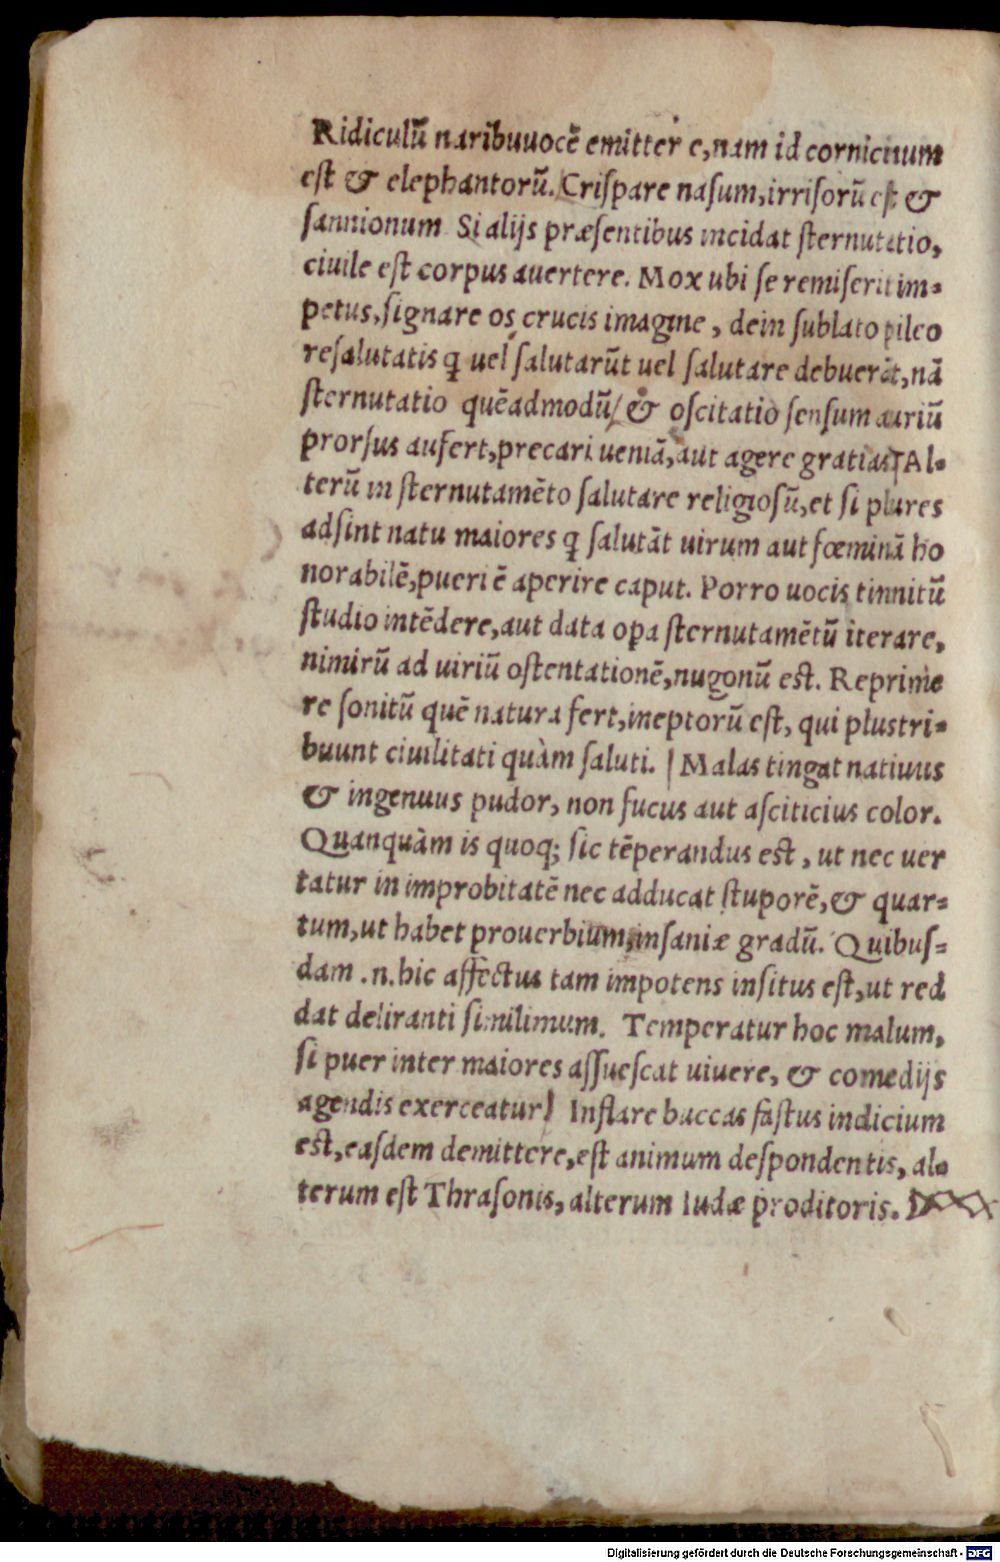 Ridiculū naribuuocē emittere e,nam id cornicinum
est & elephantorū. Crispare nasum,irrisorū est &
sannionum Si alijs præsentibus incidat sternutatio,
ciuile est corpus auertere. Mox ubi se remiserit im-
petus,signare os crucis imagine, dein sublato pileo
resalutatis q uel salutarūt uel salutare debuerāt,nā
sternutatio quēadmodū & oscitatio sensum auriū
prorsus aufert,precari ueniā,aut agere gratias Al-
terū in sternutamēto salutare religiosū,et si plures
adsint natu maiores q salutāt uirum aut fœminā ho
norabilē,pueri ē aperire caput. Porro uocis tinnitū
studio intēdere,aut data opa sternutamētū iterare,
nimirū ad uiriū ostentationē,nugonū est. Reprime
re sonitū quē natura fert,ineptorū est, qui plustri-
buunt ciuilitati quàm saluti. Malas tingat natiuus
& ingenuus pudor, non fucus aut asciticius color.
Quanquàm is quoq; sic tēperandus est, ut nec uer
tatur in improbitatē nec adducat stuporē,& quar-
tum,ut habet prouerbium,insaniæ gradū. Quibus-
dam .n.hic affectus tam impotens insitus est,ut red
dat deliranti similimum. Temperatur hoc malum,
si puer inter maiores assuescat uiuere, & comedijs
agendis exerceatur Inflare buccas fastus indicium
est,easdem demittere,est animum despondentis, al-
terum est Thrasonis, alterum Iudæ proditoris.
Digitalisierung gefördert durch die Deutsche Forschungsgemeinschaft - DFG